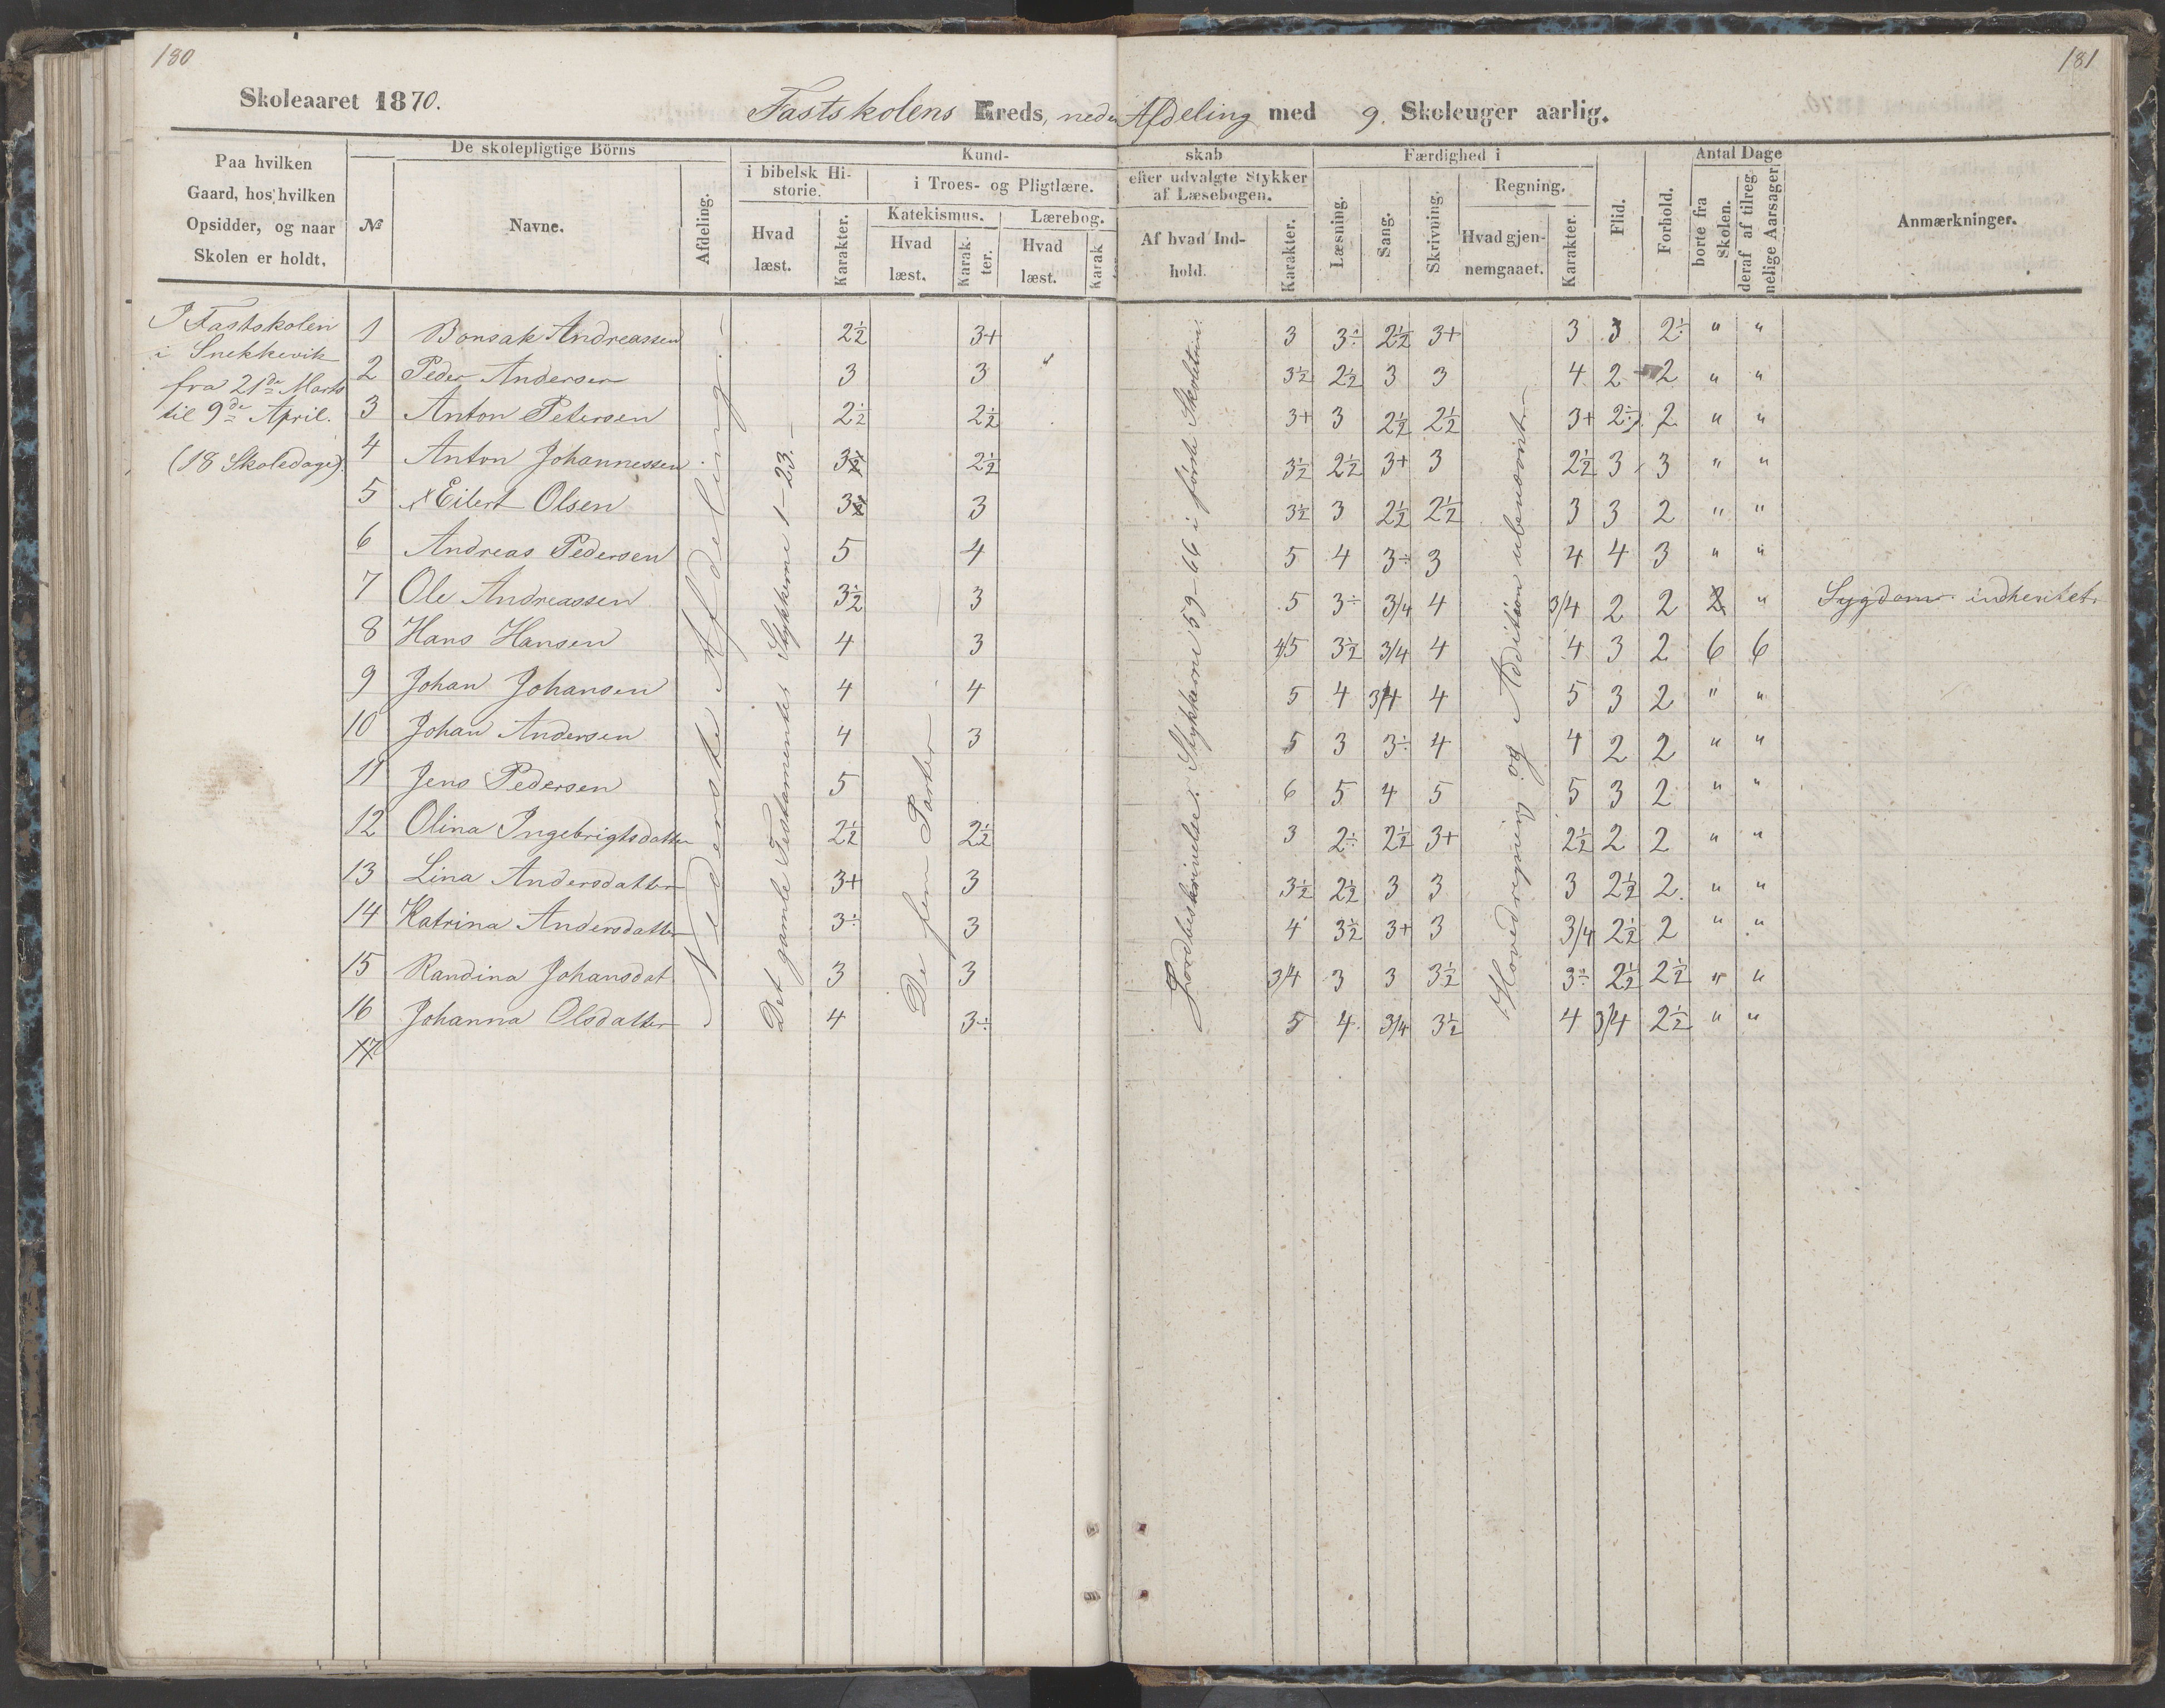 180
181
Skoleaaret 1870.
Fastskolens Kreds, neder Afdeling med 9. Skoleuger aarlig.
Paa hvilken Gaard, hos hvilken Opsidder, og naar Skolen er holdt.
De skolepligtige Börns
№ Navne. Afdeling.
Kundskab
i bibelsk Historie. Hvad læst. Karakter.
i Troes- og Pligtlære.
Katekismus. Hvad læst. Karakter.
Lærebog. Hvad læst. Karak ter.
efter udvalgte Stykker af Læsebogen.
Af hvad Indhold. Karakter.
Færdighed i
Læsning. Sang. Skrivning.
Regning. Hvad gjennemgaaet. Karakter.
Flid. Forhold.
Antal Dage
borte fra Skolen. deraf af tilregnelige Aarsager.
Anmærkninger.
I Fastskolen
i Snekkevik
fra 21de Marts
til 9de April.
(18 Skoledage).
Nederste Afdeling.
Det gamle Testamentes Stykkerne 1-23.
De fem Parter
Jordbeskrivelse: Stykkerne 59-66 i første Skoletrin.
Hovedregning og Addition ubenævnte
1 Bonsak Andreassen 2½ 3+ 3 3÷ 2½ 3+ 3 3 2÷ " "
2 Peder Andersen 3 3 " 3½ 2½ 3 3 4 2 2 " "
3 Anton Petersen 2½ 2½ 3+ 3 2½ 2½ 3+ 2÷ 2 " "
4 Anton Johannessen 3 2½ 3½ 2½ 3+ 3 2½ 3 3 " "
5 x Eilert Olsen 3 3 3½ 3 2½ 2½ 3 3 2 " "
6 Andreas Pedersen 5 4 5 4 3÷ 3 4 4 3 " "
7 Ole Andreassen 3½ 3 5 3÷ 3/4 4 3/4 2 2 2 " Sygdom indhentet.
8 Hans Hansen 4 3 4/5 3½ 3/4 4 4 3 2 6 6
9 Johan Johansen 4 4 5 4 3/4 4 5 3 2 " "
10 Johan Andersen 4 3 5 3 3÷ 4 4 2 2 " "
11 Jens Pedersen 5 6 5 4 5 5 3 2 " "
12 Olina Ingebrigtsdatter 2½ 2½ 3 2÷ 2½ 3+ 2½ 2 2 " "
13 Lina Andersdatter 3+ 3 3½ 2½ 3 3 3 2½ 2. " "
14 Katrina Andersdatter 3÷ 3 4 3½ 3+ 3 3/4 2½ 2 " "
15 Randina Johansdat 3 3 3/4 3 3 3½ 3÷ 2½ 2½ " "
16 Johanna Olsdatter 4 3÷ 5 4 3/4 3½ 4 3/4 2½ " "
17